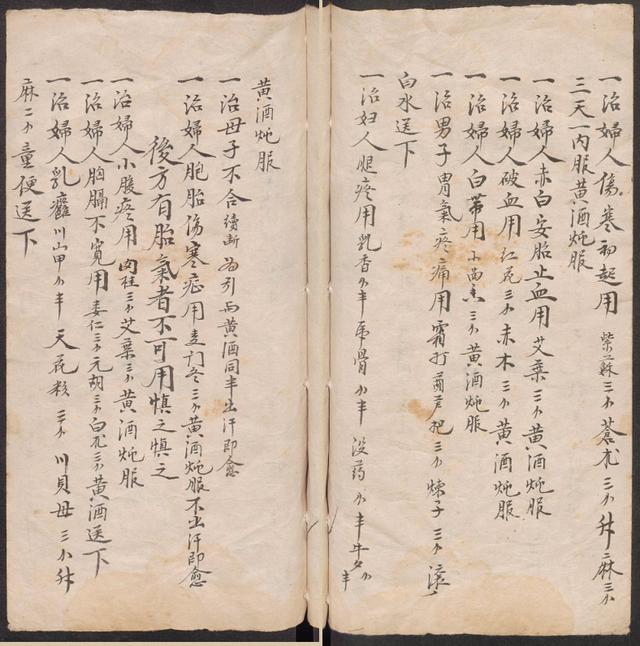 一治婦人傷寒初起用紫蘇三分蒼朮三分升麻三分
三天一內服黃酒炖服
一治婦人赤白安胎止血用艾葉三分黃酒炖服
一治婦人破血用紅花三分赤木三分黃酒炖服
一治婦人白帶用小茴香三分黃酒炖服
一治男子胃氣疼痛用霜打葫芦把三分楝子三分滾
白水送下
一治妇人腿疼用乳香分半虎骨分半沒药分半牛夕分半
黃酒炖服
一治母子不合續断為引兩黃酒同半出汗即愈
一治婦人胞胎傷寒症用麦門冬三分黃酒炖服不出汗即愈
後方有胎氣者不可用慎之慎之
一治婦人小腹疼用肉桂三分艾葉三分黃酒炖服
一治婦人胸膈不寬用蒌仁三分元胡三分白朮三分黃酒送下
一治婦人乳癰川山甲分半天花粉三分川貝母三分升
麻二分童便送下